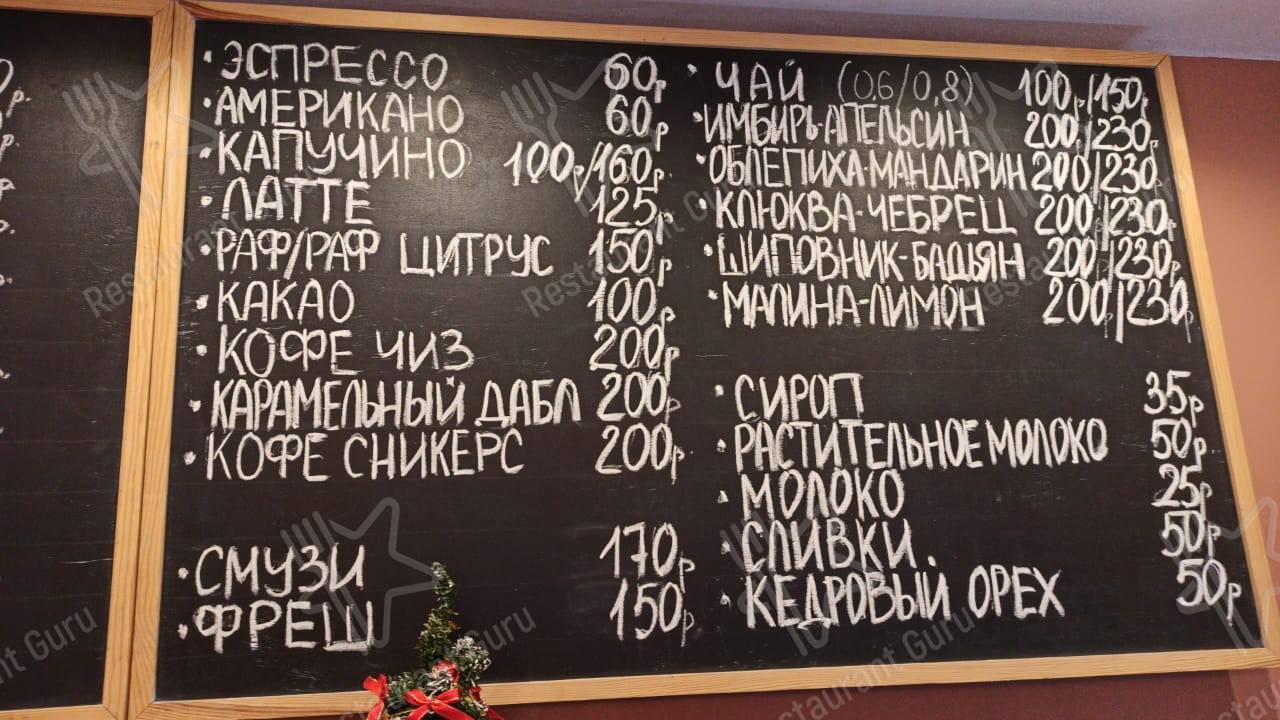 • ЭСПРЕССО 60р
• АМЕРИКАНО 60р
• КАПУЧИНО 100р/160р
• ЛАТТЕ 125р
• РАФ/РАФ ЦИТРУС 150р
• КАКАО 100р
• КОФЕ ЧИЗ 200р
• КАРАМЕЛЬНЫЙ ДАБЛ 200р
• КОФЕ СНИКЕРС 200р
• СМУЗИ 170р
• ФРЕШ 150р
• ЧАЙ (0,6/0,8) 100р/150р
• ИМБИРЬ-АПЕЛЬСИН 200р/230р
• ОБЛЕПИХА-МАНДАРИН 200/230р
• КЛЮКВА-ЧЕБРЕЦ 200/230р
• ШИПОВНИК-БАДЬЯН 200/230р
• МАЛИНА-ЛИМОН 200/230р
• СИРОП 35р
• РАСТИТЕЛЬНОЕ МОЛОКО 50р
• МОЛОКО 25р
• СЛИВКИ. 50р
• КЕДРОВЫЙ ОРЕХ 50р
Restaurant Guru